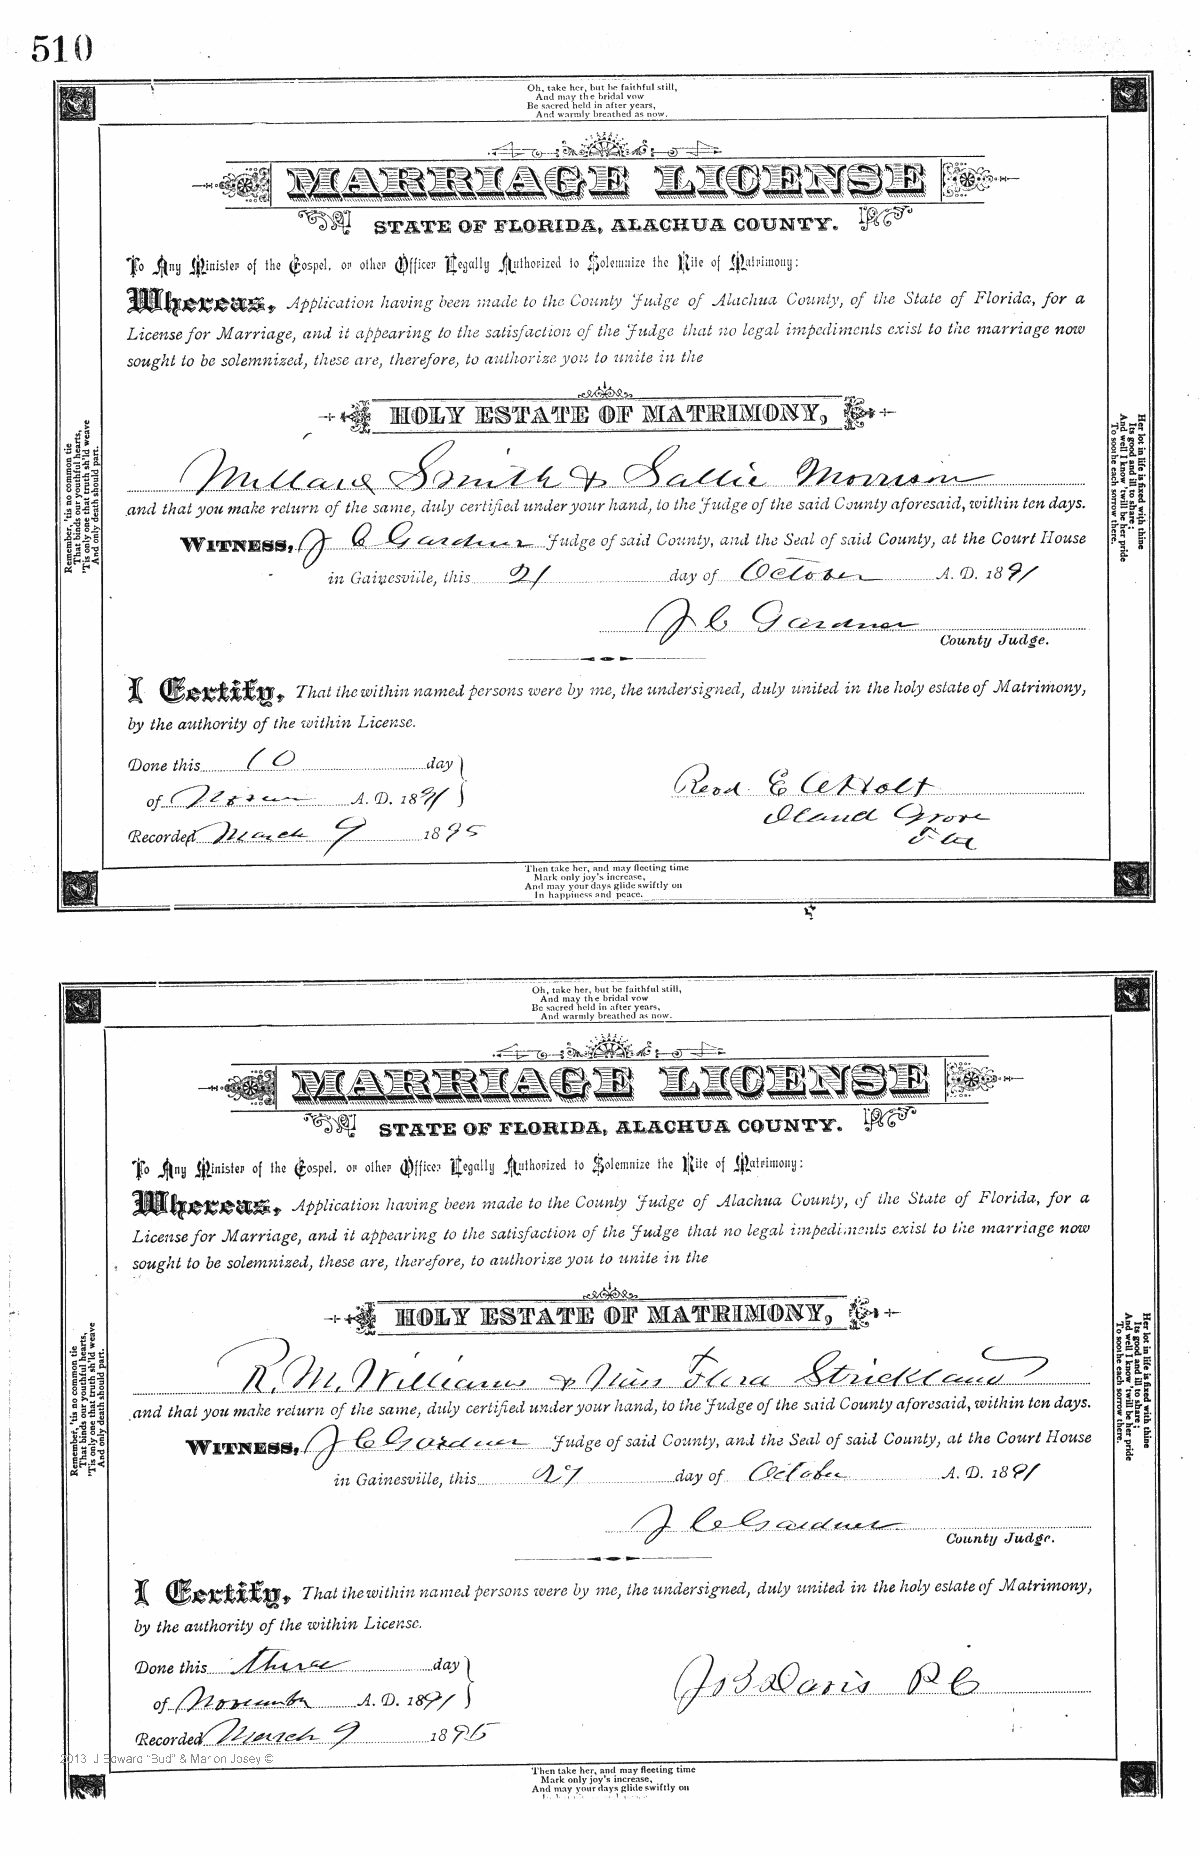 510
Oh, take her, but be faithful still,
And may the bridal vow
Be sacred held in after years,
And warmly breathed as now.
MARRIAGE LICENSE
STATE OF FLORIDA, ALACHUA COUNTY.
To Any Minister of the Gospel, or other Officer Legally Authorized to Solemnize the Rite of Matrimony:
Whereas, Application having been made to the County Judge of Alachua County, of the State of Florida, for a
License for Marriage, and it appearing to the satisfaction of the Judge that no legal impediments exist to the marriage now
sought to be solemnized, these are, therefore, to authorize you to unite in the
HOLY ESTATE OF MATRIMONY,
Millard Smith & Sallie Morrison
and that you make return of the same, duly certified under your hand, to the Judge of the said County aforesaid, within ten days.
WITNESS, J C Gardner Judge of said County, and the Seal of said County, at the Court House
in Gainesville, this 21 day of October A. D. 1891
J C Gardner
County Judge.
I Certify, That the within named persons were by me, the undersigned, duly united in the holy estate of Matrimony,
by the authority of the within License.
Done this 10 day
of A. D. 1891
Recorded March 9 1895
Revd. E Holt
Iland Grove
Fla
Remember, 'tis no common tie
That binds our youthful hearts,
'Tis only one that truth sh'ld weave
And only death should part.
Her lot in life is fixed with thine
Its good and ill to share;
And well I know 'twill be her pride
To soothe each sorrow there.
Then take her, and may fleeting time
Mark only joy's increase,
And may your days glide swiftly on
In happiness and peace.
Oh, take her, but be faithful still,
And may the bridal vow
Be sacred held in after years,
And warmly breathed as now.
MARRIAGE LICENSE
STATE OF FLORIDA, ALACHUA COUNTY.
To Any Minister of the Gospel, or other Officer Legally Authorized to Solemnize the Rite of Matrimony:
Whereas, Application having been made to the County Judge of Alachua County, of the State of Florida, for a
License for Marriage, and it appearing to the satisfaction of the Judge that no legal impediments exist to the marriage now
sought to be solemnized, these are, therefore, to authorize you to unite in the
HOLY ESTATE OF MATRIMONY,
R. M. Williams & Miss Flora Strickland
and that you make return of the same, duly certified under your hand, to the Judge of the said County aforesaid, within ten days.
WITNESS, J C Gardner Judge of said County, and the Seal of said County, at the Court House
in Gainesville, this 27 day of October A. D. 1891
J C Gardner
County Judge.
I Certify, That the within named persons were by me, the undersigned, duly united in the holy estate of Matrimony,
by the authority of the within License.
Done this three day
of November A. D. 1891
Recorded March 9 1895
J B Davis P C
Remember, 'tis no common tie
That binds our youthful hearts,
'Tis only one that truth sh'ld weave
And only death should part.
Her lot in life is fixed with thine
Its good and ill to share;
And well I know 'twill be her pride
To soothe each sorrow there.
2013 J Edward "Bud" & Marion Josey ©
Then take her, and may fleeting time
Mark only joy's increase,
And may your days glide swiftly on